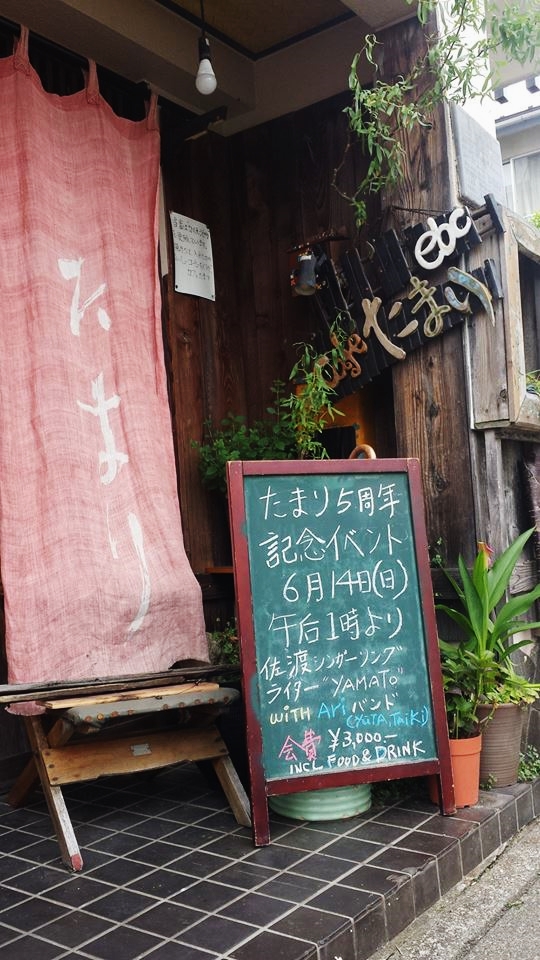 たまり
ebc
cafe たまり
たまり5周年
記念イベント
6月14日(日)
午后1時より
佐渡シンガーソング
ライター"YAMATO"
WITH Ari バンド
(YUTA, TAIKI)
会費 ¥3,000-
INCL FOOD & DRINK